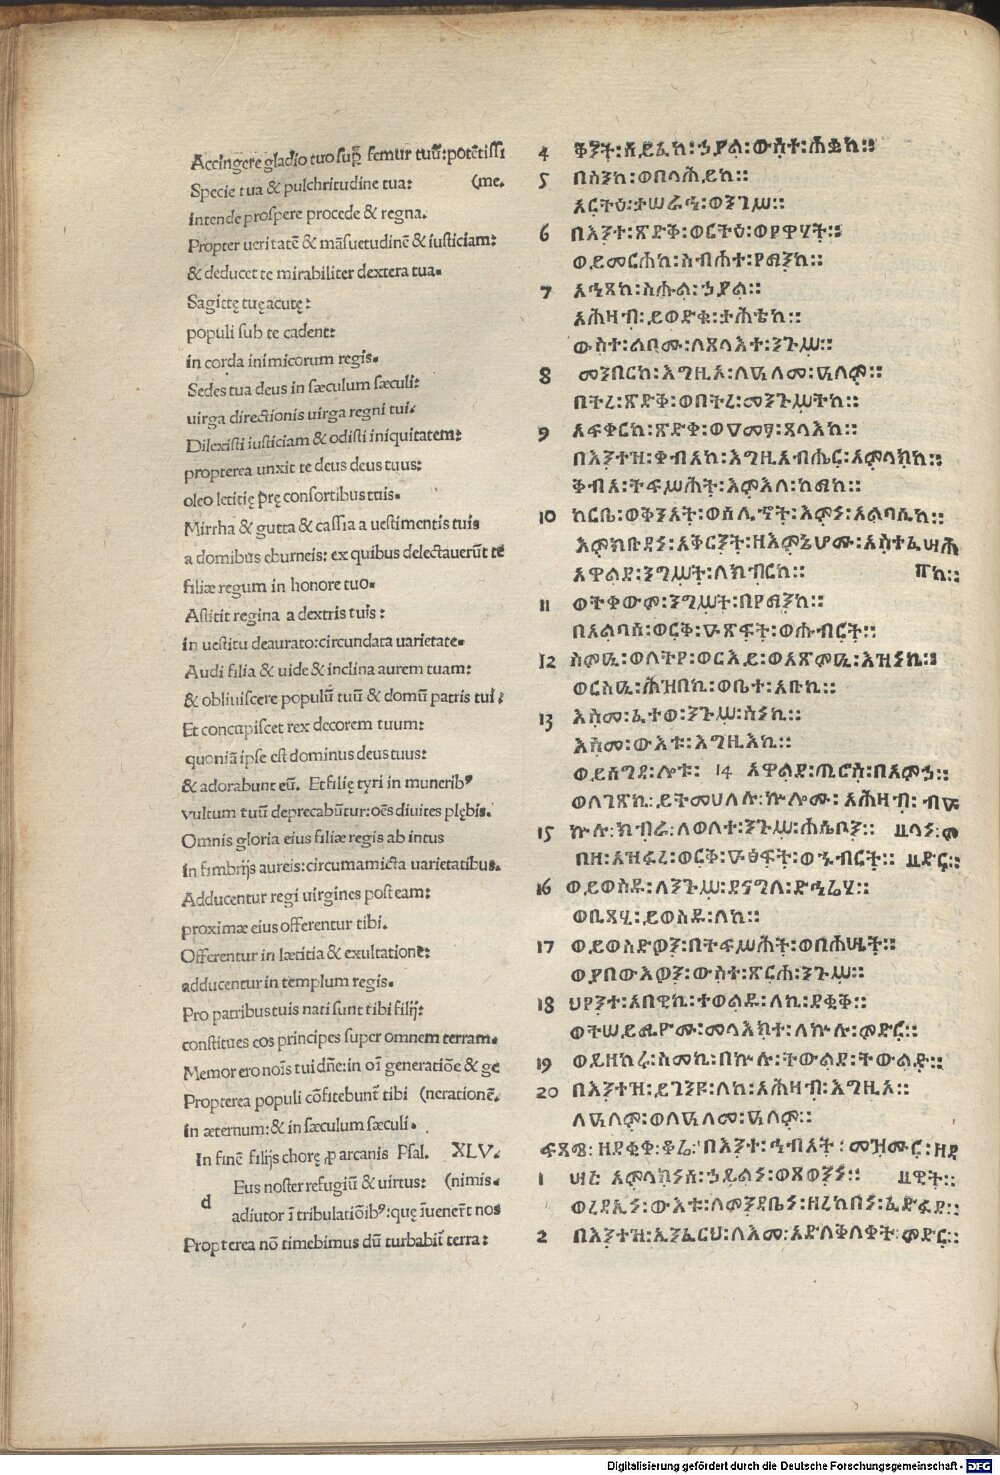 Accingere gladio tuo sup̄ femur tuū: potētissi
Specie tua & pulchritudine tua: (me.
Intende prospere procede & regna.
Propter ueritatē & māsuetudinē & iusticiam:
& deducet te mirabiliter dextera tua.
Sagittę tuę acutę:
populi sub te cadent:
in corda inimicorum regis.
Sedes tua deus in sæculum sæculi:
uirga directionis uirga regni tui.
Dilexisti iusticiam & odisti iniquitatem:
propterea unxit te deus deus tuus:
oleo letitię p̄rę consortibus tuis.
Mirrha & gutta & cassia a uestimentis tuis
a domibus eburneis: ex quibus delectauerūt te
filiæ regum in honore tuo.
Astitit regina a dextris tuis:
in uestitu deaurato: circundata uarietate.
Audi filia & uide & inclina aurem tuam:
& obliuiscere populū tuū & domū patris tui:
Et concupiscet rex decorem tuum:
quoniā ipse est dominus deus tuus:
& adorabunt eū. Et filię tyri in munerib⁹
vultum tuū deprecabūtur: oēs diuites plębis.
Omnis gloria eius filiæ regis ab intus
in fimbrijs aureis: circumamicta uarietatibus.
Adducentur regi uirgines post eam:
proximæ eius offerentur tibi.
Offerentur in lætitia & exultatione:
adducentur in templum regis.
Pro patribus tuis nati sunt tibi filij:
constitues eos principes super omnem terram.
Memor ero noīs tui dn̄e: in oī generatiōe & ge
Propterea populi cōfitebunt̄ tibi (nerationē.
in æternum: & in sæculum sæculi.
In finē filijs chorę ꝓ arcanis Psal. XLV.
d Eus noster refugiū & uirtus: (nimis.
adiutor ī tribulatiōib⁹: quę īuenert̄ nos
Propterea nō timebimus dū turbabit̄ terra:
4 ቅንት፡ሰይፈከ፡ኃያል፡ውስተ፡ሐቌከ።
5 በስንከ፡ወበላሕይከ።
አርትዕ፡ተሠራሕ፡ወንግሥ።
6 በእንተ፡ጽድቅ፡ወርትዕ፡ወየዋሃት።
ወይመርሐከ፡ስብሐተ፡የማንከ።
7 አሕጻከ፡ስሑል፡ኃያል።
አሕዛብ፡ይወድቁ፡ታሕቴከ።
ውስተ፡ልቦሙ፡ለጸላእተ፡ንጉሥ።
8 መንበርከ፡እግዚኦ፡ለዓለመ፡ዓለም።
በትረ፡ጽድቅ፡ወበትረ፡መንግሥትከ።
9 አፍቀርከ፡ጽድቀ፡ወዐመፃ፡ጸላእከ።
በእንተዝ፡ቀብአከ፡እግዚአብሔር፡አምላክከ።
ቅብአ፡ትፍሥሕት፡እምእለ፡ከማከ።
10 ከርቤ፡ወቅንአት፡ወሰሊኆት፡እምነ፡አልባሲከ።
እምክቡደነ፡አቅርንት፡ዘእምኔሆሙ፡አስተፈሣሕ
አዋልደ፡ነግሥት፡ለክብርከ። ፐከ።
11 ወትቀውም፡ንግሥት፡በየማንከ።
በአልባሰ፡ወርቅ፡ዑጽፍት፡ወሑብርት።
12 ስምዒ፡ወለትየ፡ወርእይ፡ወአጽምዒ፡እዝነኪ።
ወርስዒ፡ሕዝበኪ፡ወቤተ፡አቡኪ።
13 እስመ፡ፈተወ፡ንጉሥ፡ስነኪ።
እስመ፡ውእቱ፡እግዚእኪ።
ወይሰግዳ፡ሎቱ፡ 14 አዋልደ፡ጢሮስ፡በአምኃ።
ወለገጽከ፡ይትመሀለሉ፡ኵሎሙ፡አሕዛብ፡ብዑ
15 ኵሉ፡ክብራ፡ለወለተ፡ንጉሥ፡ሐሴቦን። ዚላነ፡ም
በዘ፡አዝፋረ፡ወርቅ፡ዑፅፍት፡ወኁብርት። ዚድር።
16 ወይወስዱ፡ለንጉሥ፡ደናግለ፡ድኅሬሃ።
ወቢጻሂ፡ይወስዱ፡ለከ።
17 ወይወስድዎን፡በትፍሥሕት፡ወበሐሤት።
ወያበውእዎን፡ውስተ፡ጽርሐ፡ንጉሥ።
18 ህየንተ፡አበዊኪ፡ተወልዱ፡ለኪ፡ደቂቅ።
ወትሠይሚዮሙ፡መላእክተ፡ለኵሉ፡ምድር።
19 ወይዘከሩ፡ስመኪ፡በኵሉ፡ትውልደ፡ትውልድ።
20 በእንተዝ፡ይገንዩ፡ለከ፡አሕዛብ፡እግዚኦ።
ለዓለም፡ወለዓለመ፡ዓለም።
ፍጻሜ፡ዘደቂቀ፡ቆሬ፡በእንተ፡ኅቡአት፡መዝሙር፡ዘዳ
1 አምላክነሰ፡ኃይልነ፡ወጸወንነ። ዚዊት።
ወረዳኢነ፡ውእቱ፡ለምንዳቤነ፡ዘረከበነ፡ፈድፋደ።
2 በእንተዝ፡ኢንፈርህ፡ለእመ፡አድለቅለቀት፡ምድር።
Digitalisierung gefördert durch die Deutsche Forschungsgemeinschaft - DFG